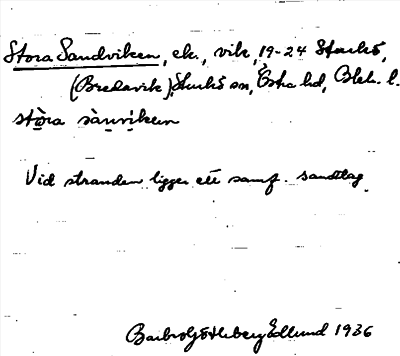 Stora Sandviken, ek., vik, 19-24 Sturkö,
(Bredavik), Sturkö sn, Östra hd, Blek. l.
stòra sànviken
Vid stranden ligger ett samf. sandtag.
Barbro Götleberg Edlund 1936